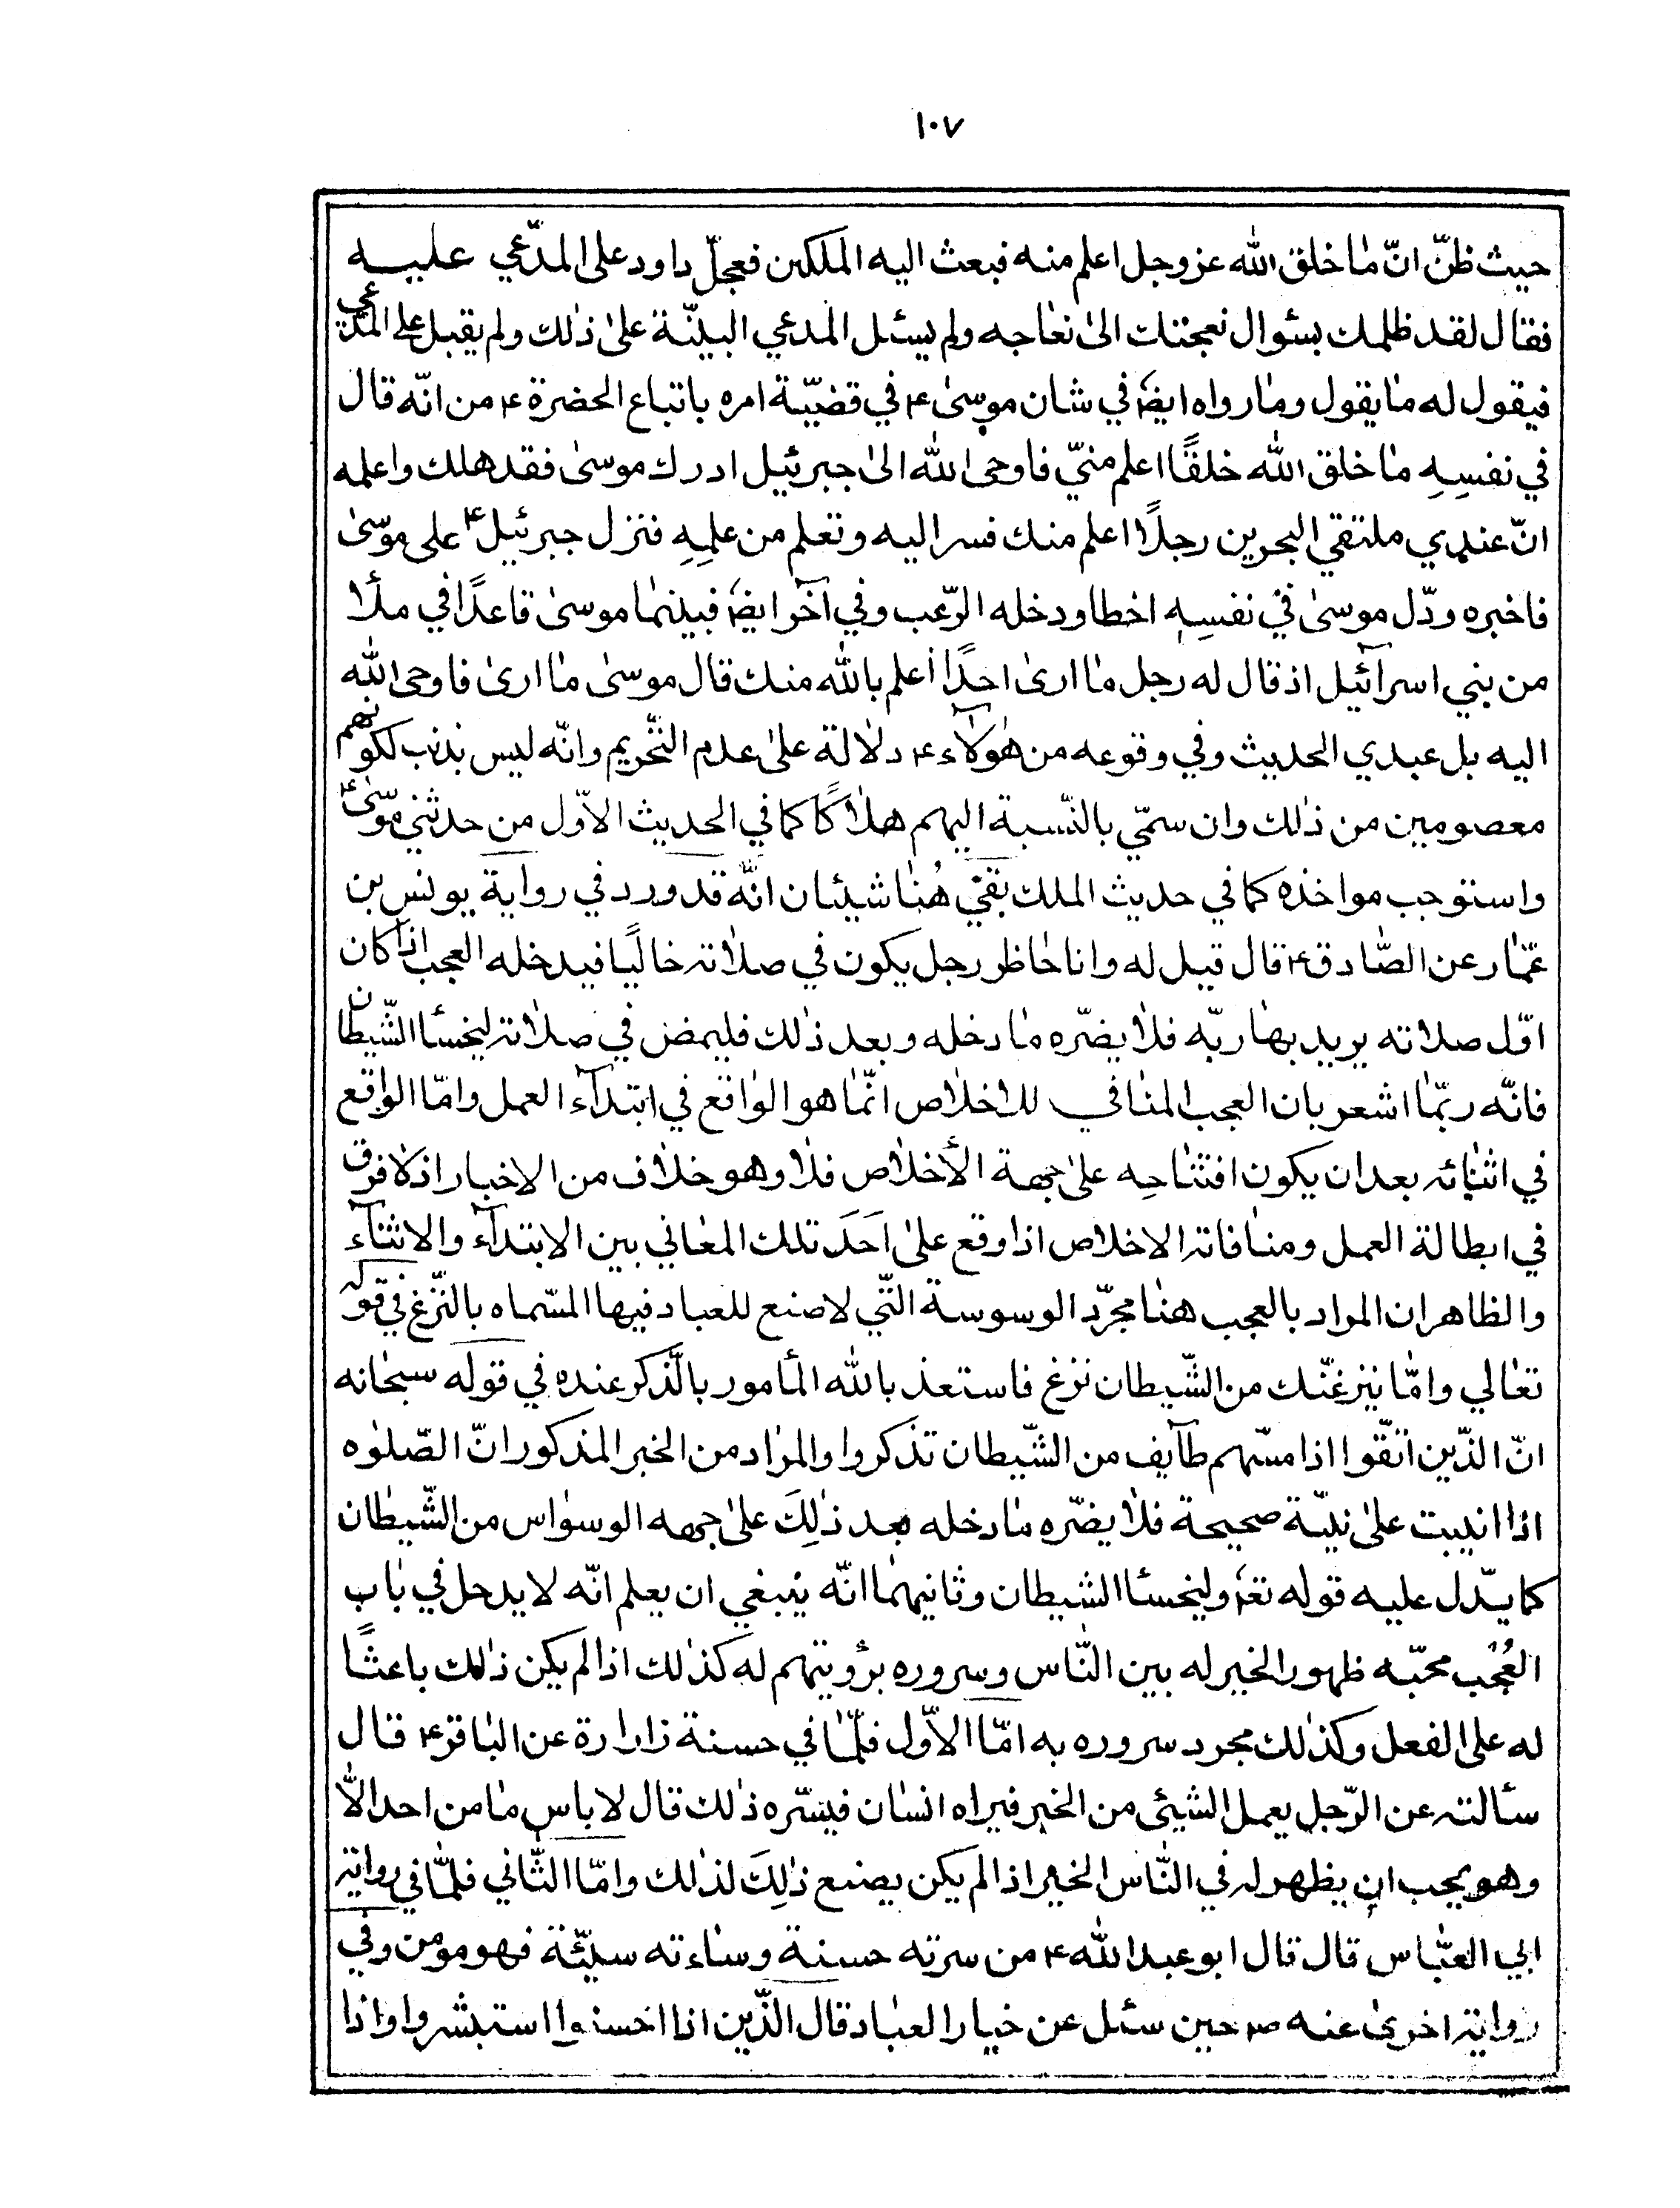 ١٠٧
حيث ظنّ انّ مٰا خلق اللّه عز وجل اعلم منه فبعث اليه الملكين فعجلّ داود على المدّعي عليه
فقال لقد ظلمك بسئوال نعجتك الىٰ نعٰاجه ولم يسئل المدعي البيّنة علىٰ ذٰلك ولم يقبل على المدّعي
فيقول له مٰا يقول ومٰا رواه ايضؐ في شان موسىٰ ع في قضيّة امره باتباع الحضرة ع من انّه قال
في نفسِهِ مٰا خلق اللّه خلقًا اعلم منّي فاوحى اللّه الىٰ جبرئيل ادرك موسىٰ فقد هلك واعلمه
انّ عندي ملتقي البحرين رجلًا اعلم منك فسر اليه وتعلم من علمِهِ فنزل جبرئيل ع على موسىٰ
فاخبره ودّل موسىٰ في نفسِهِ اخطا ودخله الرّعب وفي آخر ايضؐ فبينمٰا موسىٰ قاعدًا في ملأ
من بني اسرآئيل اذ قال له رجل مٰا ارىٰ احدًا أعلم باللّه منك قال موسىٰ مٰا ارىٰ فاوحى اللّه
اليه بل عبدي الحديث وفي وقوعه من هٰؤلآء ع دلٰالة علىٰ عدم التّحريم وانّه ليس بذنب لكونهم
معصومين من ذٰلك وان سمّي بالنّسبة اليهم هلٰاكًا كما في الحديث الاوّل من حدثني موسىٰ ع
واستوجب مواخذه كما في حديث الملك بقيَ هُنٰا شيئان انّه قد ورد في رواية يونس بن
عمّٰار عن الصّٰادق ع قال قيل له وانا حٰاظر رجل يكون في صلٰاته خاليًا فيدخله العجب اذا كان
اوّل صلاته يريد بهٰا ربّه فلٰا يضرّه مٰا دخله وبعد ذٰلك فليمض في صلٰاته ليخسأ الشّيطان
فانّه ربّمٰا اشعر بان العجب المنٰافي للاخلٰاص انّمٰا هو الوٰاقع في ابتدآء العمل وامّا الوٰاقع
في اثنٰائه بعد ان يكون افتتٰاحِه علىٰ جهة الأخلٰاص فلٰا وهو خلٰاف من الاخبار اذ لا فرق
في ابطالة العمل ومنٰافاته الاخلاص اذا وقع علىٰ اَحَدَ تلك المعٰاني بين الابتدآء والاثنآء
والظاهر ان المراد بالعجب هنٰا مجرّد الوسوسة الّتّي لا صنع للعباد فيها المسّماه بالنّزغ في قوله
تعٰالي وامّٰا ينزغنّك من الشّيطان نزغ فاستعذ باللّه المأمور بالذّكر عنده في قوله سبحٰانه
انّ الّذين اتّقوا اذا مسّهم طآيف من الشّيطان تذكروا والمرٰاد من الخبر المذكور انّ الصّلوٰه
اذا انبيت علىٰ نيّة صحيحة فلٰا يضرّه مٰا دخله بعد ذٰلِكَ علىٰ جهه الوسوٰاس من الشّيطٰان
كما يدّل عليه قوله تعؐ وليخسأ الشيطان وثانيهمٰا انّه ينبغي ان يعلم انّه لا يدحل في بٰاب
العُجُب محبّه ظهور الخير له بين النّاس وسروره برؤيتهم له كذٰلك اذا لم يكن ذٰلك باعثًا
له على الفعل وكذٰلك مجرد سروره به امّا الاوّل فلّمٰا في حسنة زارارة عن البٰاقر ع قال
سئالته عن الرّجل يعمل الشيئى من الخير فيراه انسٰان فيسّره ذٰلك قال لا باس مٰا من احد الاّ
وهو يحب ان يظهر له في النّاس الخير اذا لم يكن يصنع ذٰلِكَ لذٰلك وامّا الثّاني فلّمٰا في رواية
ابي العبّٰاس قال قال ابو عبد اللّه ع من سرته حسنة وسٰاءته سيّئة فهو مومن وفي
روٰاية اخرىٰ عنه ص حين سئل عن خيار العبٰاد قال الّذين اذا احسنوا استبشروا واذا